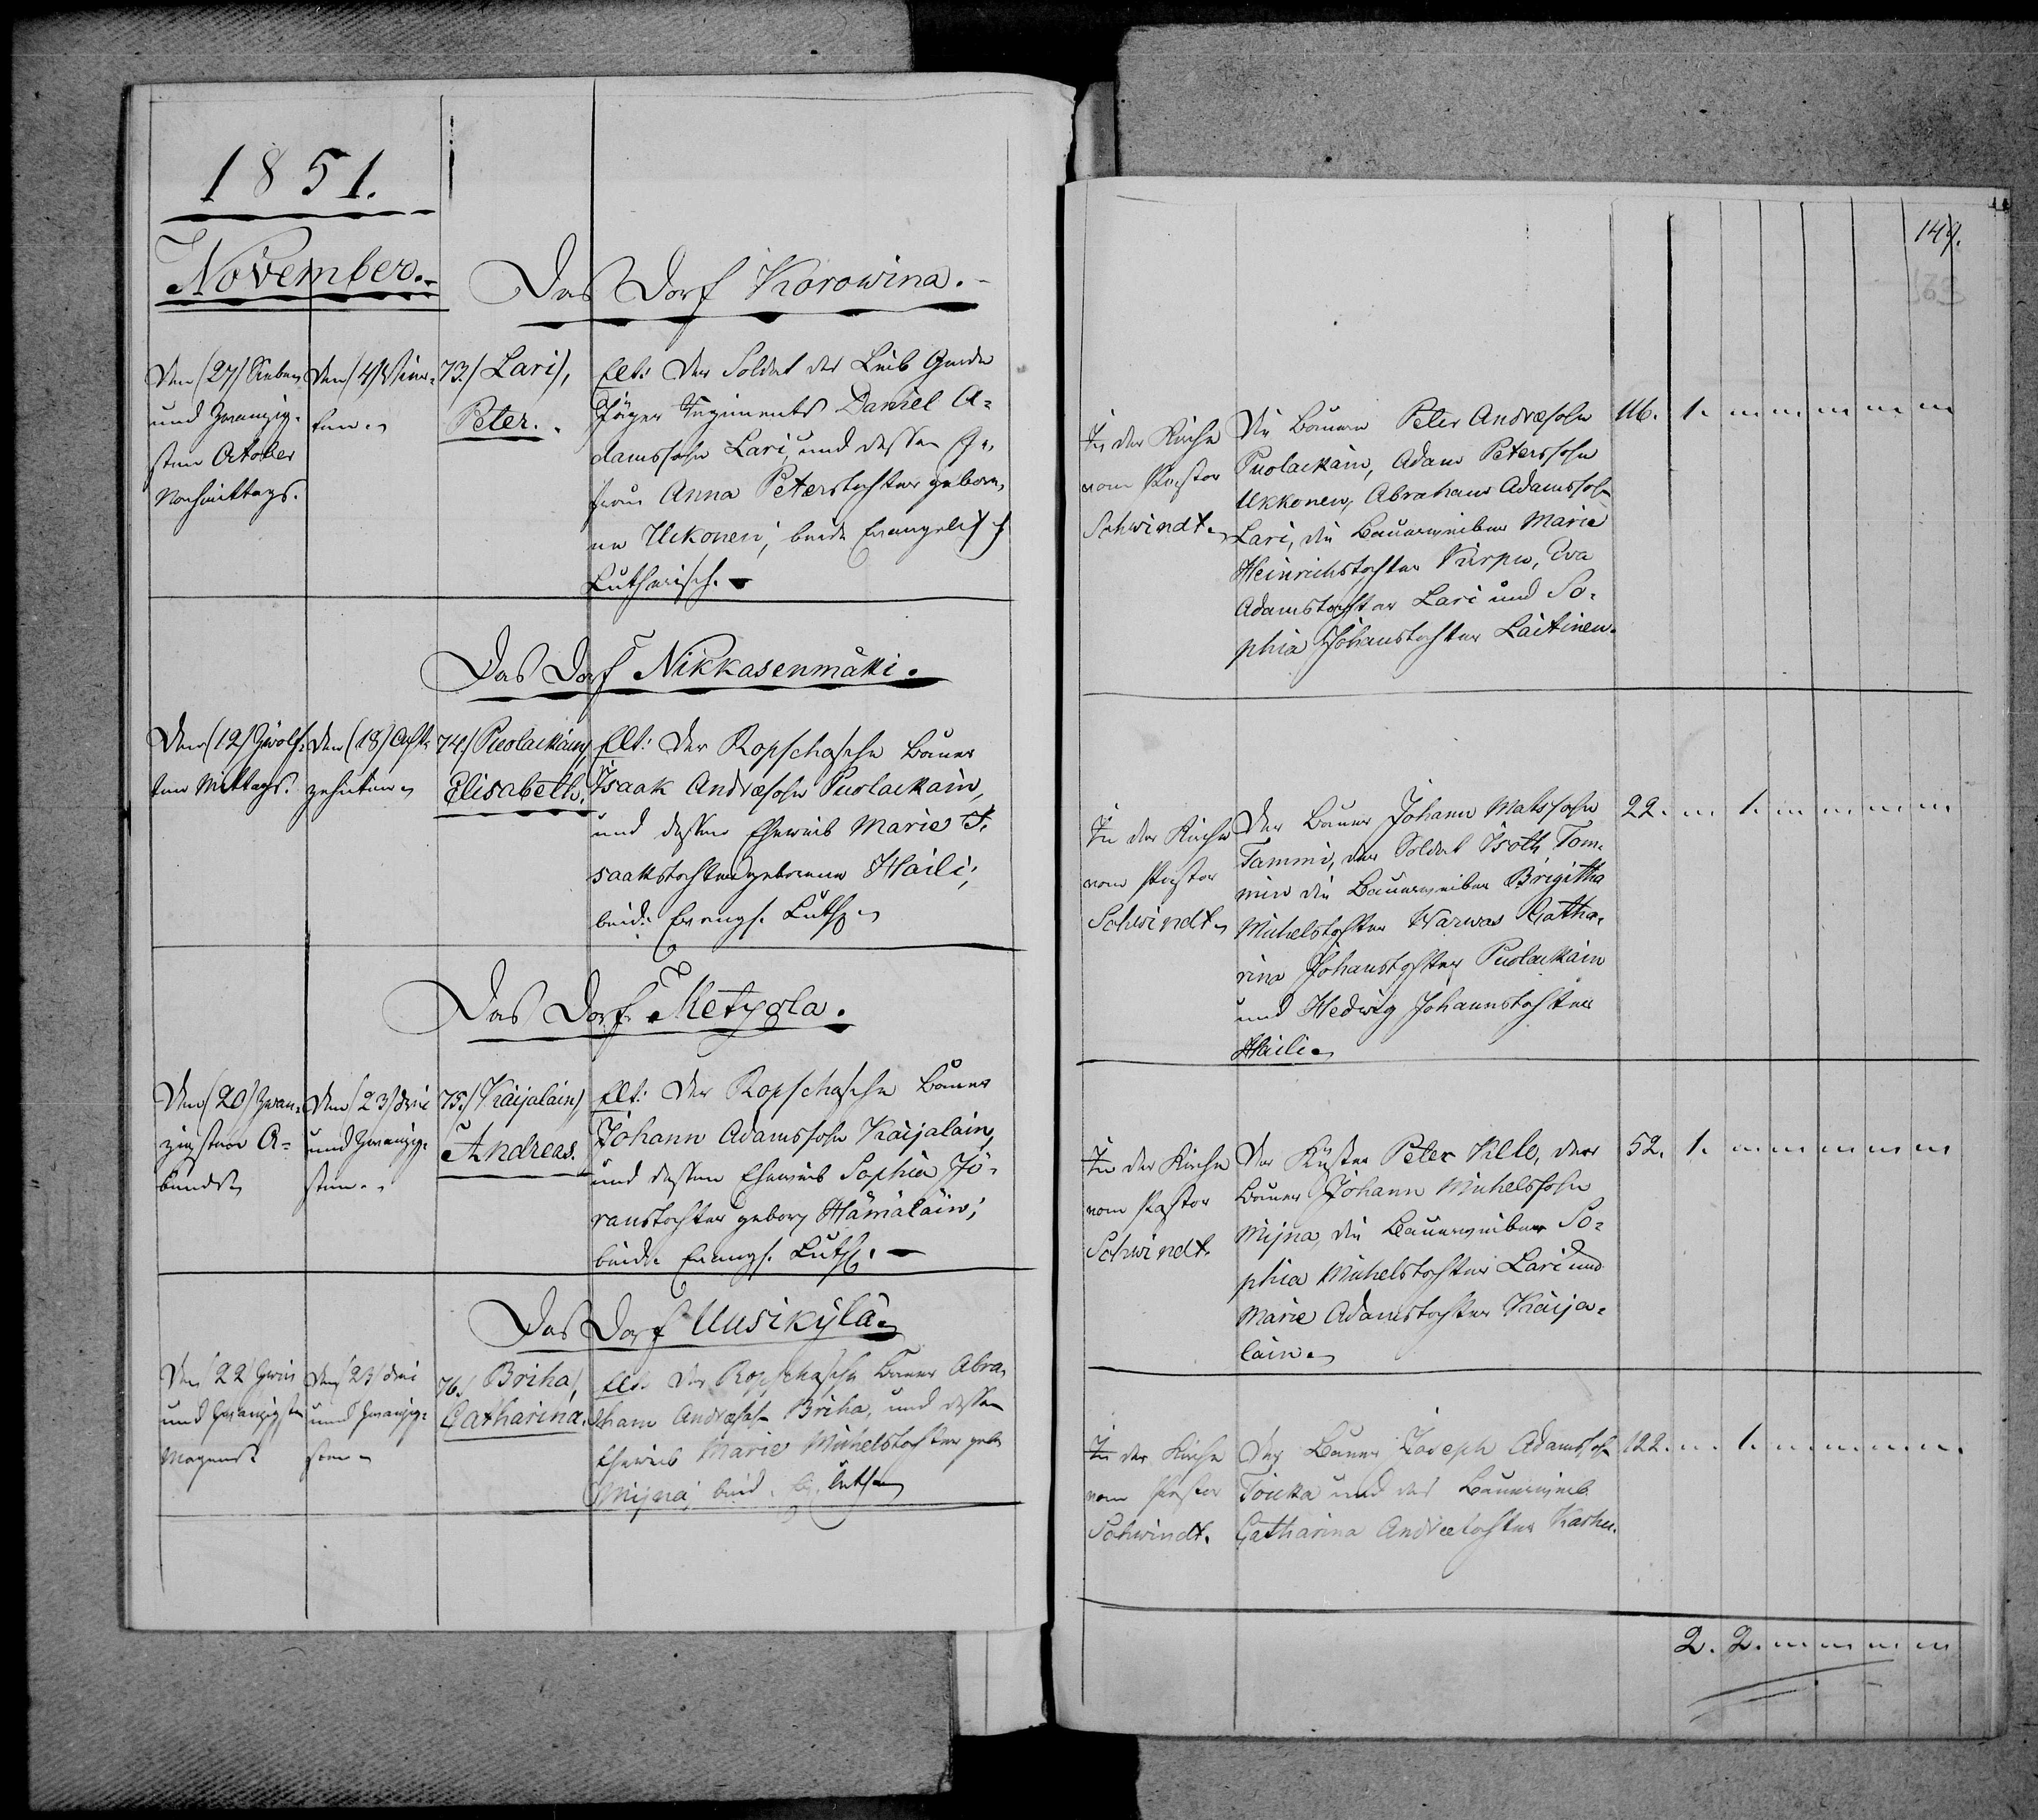 1851.
November.
Das Dorf Korowina.
Den (27) Sieben
und Zwanzig-
sten October
Nachmittags.
Den (4) Vier-
ten.
73.) Lari,
Peter.
Elt: Der Soldat des Leib Garde
Jäger Regiments Daniel A-
damssohn Lari, und dessen Ehe-
frau Anna Peterstochter gebore-
ne Ukkonen; beide Evangelisch
Lutherisch.
Das Dorf Nikkasenmäki.
Den (12) Zwölf-
ten Mittags.
Den (18) Acht-
zehnten
74.) Puolackain,
Elisabeth.
Elt: Der Ropschasche Bauer
Isaak Andreæsohn Puolackain,
und dessen Eheweib Marie I-
saakstochter geborene Haili;
beide Evangl. Luth.
Das Dorf Metyola.
Den (20) Zwan-
zigsten A-
bends
Den (23) Drei
und Zwanzig-
sten.
75.) Käijäläin,
Andreas.
Elt: Der Ropschasche Bauer
Johann Adamssohn Käijäläin,
und dessen Eheweib Sophia Jö-
ranstochter gebor. Hämäläin;
beide Evangl. Luth.
Das Dorf Uusikylä.
Den 22 Zwei
und Zwanzigsten
Morgens
Den 23 Drei
und Zwanzig-
sten
76.) Briha,
Catharina.
Elt. Der Ropschasche Bauer Abra-
ham Andreæsohn Briha, und dessen
Eheweib Marie Michelstochter geb.
Mijna; beid. Ev. Luth.
149.
In der Kirche
vom Pastor
Schwindt.
Die Bauern Peter Andreæsohn
Puolackain, Adam Peterssohn
Ukkonen, Abraham Adamssohn
Lari, die Bauerweiber Marie
Heinrichstochter Kirpu, Eva
Adamstochter Lari und So-
phia Johanstochter Laitinen.
116. 1. " " " " "
In der Kirche
vom Pastor
Schwindt.
Der Bauer Johann Matssohn
Tammi, der Soldat Tom-
min die Bauerweiber Brigitha
Michelstochter Warwas Catha-
rina Johanstochter Puolackain
und Hedwig Johannstochter
Haili.
22. " 1. " " " "
In der Kirche
vom Pastor
Schwindt.
Der Küster Peter Klle, der
Bauer Johann Michelssohn
Mijna, die Bauerweiber So-
phia Michelstochter Lari und
Marie Adamstochter Käijä-
läin.
52. 1. " " " " "
In der Kirche
vom Pastor
Schwindt.
Der Bauer Joseph Adamssohn
Toucka und das Bauerweib
Catharina Andreetochter Karhu.
122. " 1. " " " "
2. 2. " " " "